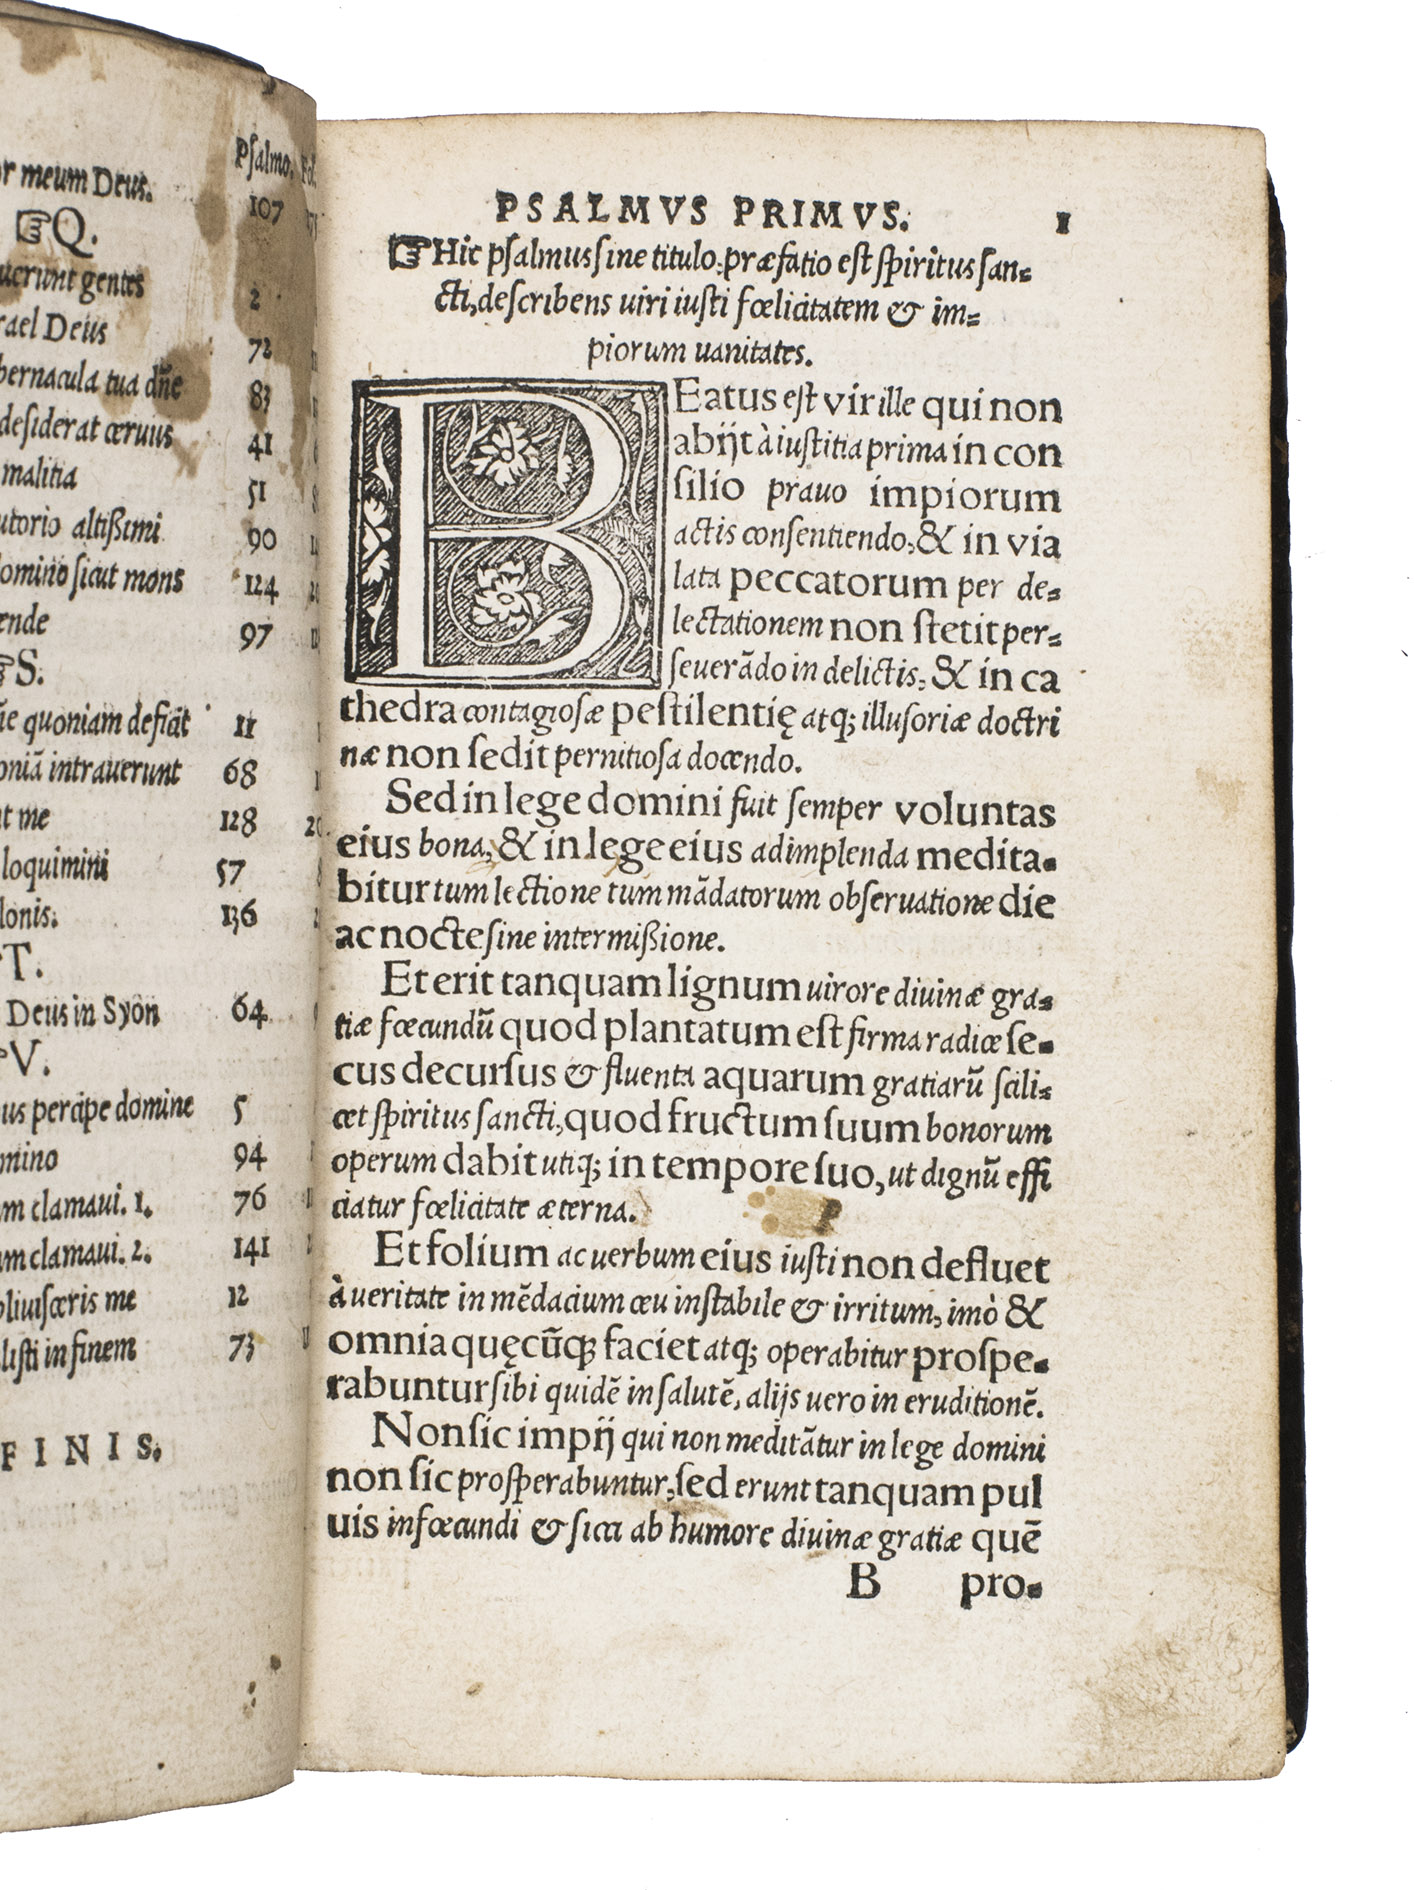 Psalmo. Fol.
or meum Deus. 107
☞Q.
uerunt gentes 2
rael Deus 72
bernacula tua dñe 83
desiderat ceruus 41
malitia 51
utorio altißimi 90
domino sicut mons 124
ende 97
☞S.
quoniam defiāt 11
oniā intrauerunt 68
t me 128
loquimini 57
lonis. 136
T.
Deus in Syon 64
V.
us percipe domine 5
mino 94
am clamaui. 1. 76
am clamaui. 2. 141
obliuisceris me 12
listi in finem 73
FINIS.
PSALMVS PRIMVS. 1
☞Hic psalmus sine titulo, præfatio est spiritus san-
cti, describens uiri iusti fœlicitatem & im-
piorum uanitates.
BEatus est vir ille qui non
abijt à iustitia prima in con
silio prauo impiorum
actis consentiendo, & in via
lata peccatorum per de-
lectationem non stetit per-
seuerādo in delictis, & in ca
thedra contagiosæ pestilentię atq; illusoriæ doctri
næ non sedit pernitiosa docendo.
Sed in lege domini fuit semper voluntas
eius bona, & in lege eius adimplenda medita-
bitur tum lectione tum mādatorum obseruatione die
ac nocte sine intermißione.
Et erit tanquam lignum uirore diuinæ gra-
tiæ fœcundū quod plantatum est firma radice se-
cus decursus & fluenta aquarum gratiarū scili-
cet spiritus sancti, quod fructum suum bonorum
operum dabit utiq; in tempore suo, ut dignū effi
ciatur fœlicitate æterna.
Et folium ac uerbum eius iusti non defluet
à ueritate in mēdacium ceu instabile & irritum, imò &
omnia quęcūq; faciet atq; operabitur prospe-
rabuntur sibi quidē in salutē, alijs uero in eruditionē.
Non sic impij qui non meditātur in lege domini
non sic prosperabuntur, sed erunt tanquam pul
uis infœcundi & sicci ab humore diuinæ gratiæ quē
B pro-